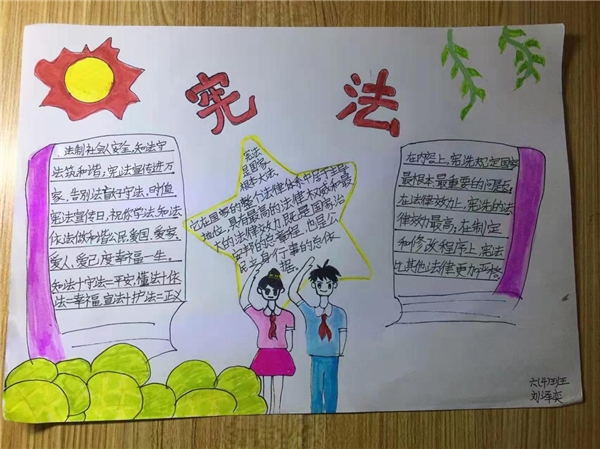 宪法
法制社会人安全,知法守
法筑和谐,宪法宣传进万
家,告别法盲于守法,时值
宪法宣传日,祝你学法,知法
依法做和谐公民,爱国,爱家,
爱人,爱己,度幸福一生。
知法十守法=平安,懂法十依
法=幸福,宣法十护法=正义
宪法
是国家
根本大法,
它在国家的整个法律体系中居于主导
地位,具有最高的法律权威和最
大的法律效力,既是国家治
安邦的总章程,也是公
民立身行事的总依
据。
在内容上,宪法规定国家
最根本最重要的问题;
在法律效力上,宪法的法
律效力最高;在制定
和修改程序上,宪法
比其他法律更加严格
六(4)班
刘泽奕